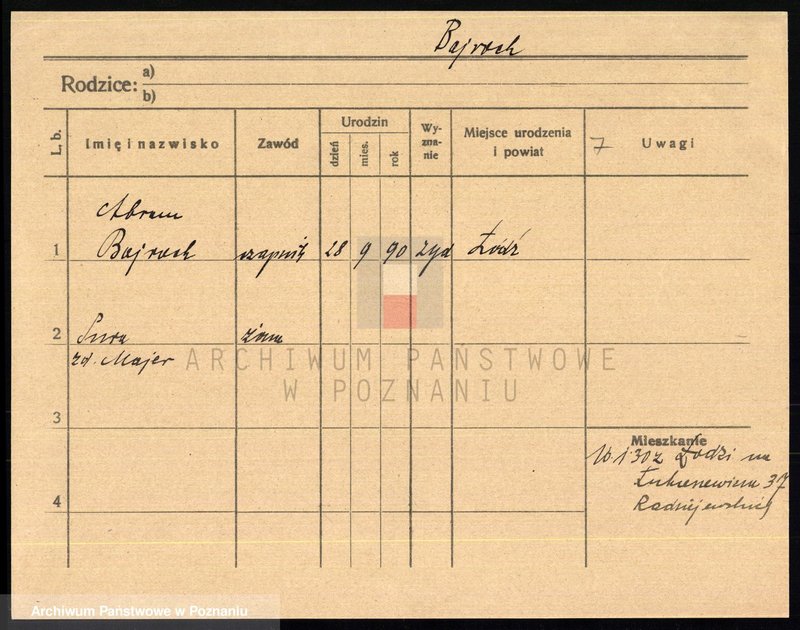 Bajroch
Rodzice: a)
b)
L. b. Imię i nazwisko Zawód Urodzin dzień mies. rok Wyznanie Miejsce urodzenia i powiat 7 Uwagi
Abram
1 Bajroch czapnik 28 9 90 żyd Łódź
2 Sura żona
zd. Majer
ARCHIWUM PAŃSTWOWE
W POZNANIU
3
Mieszkanie
16.1.30 z Łodzi na
37
4
Archiwum Państwowe w Poznaniu